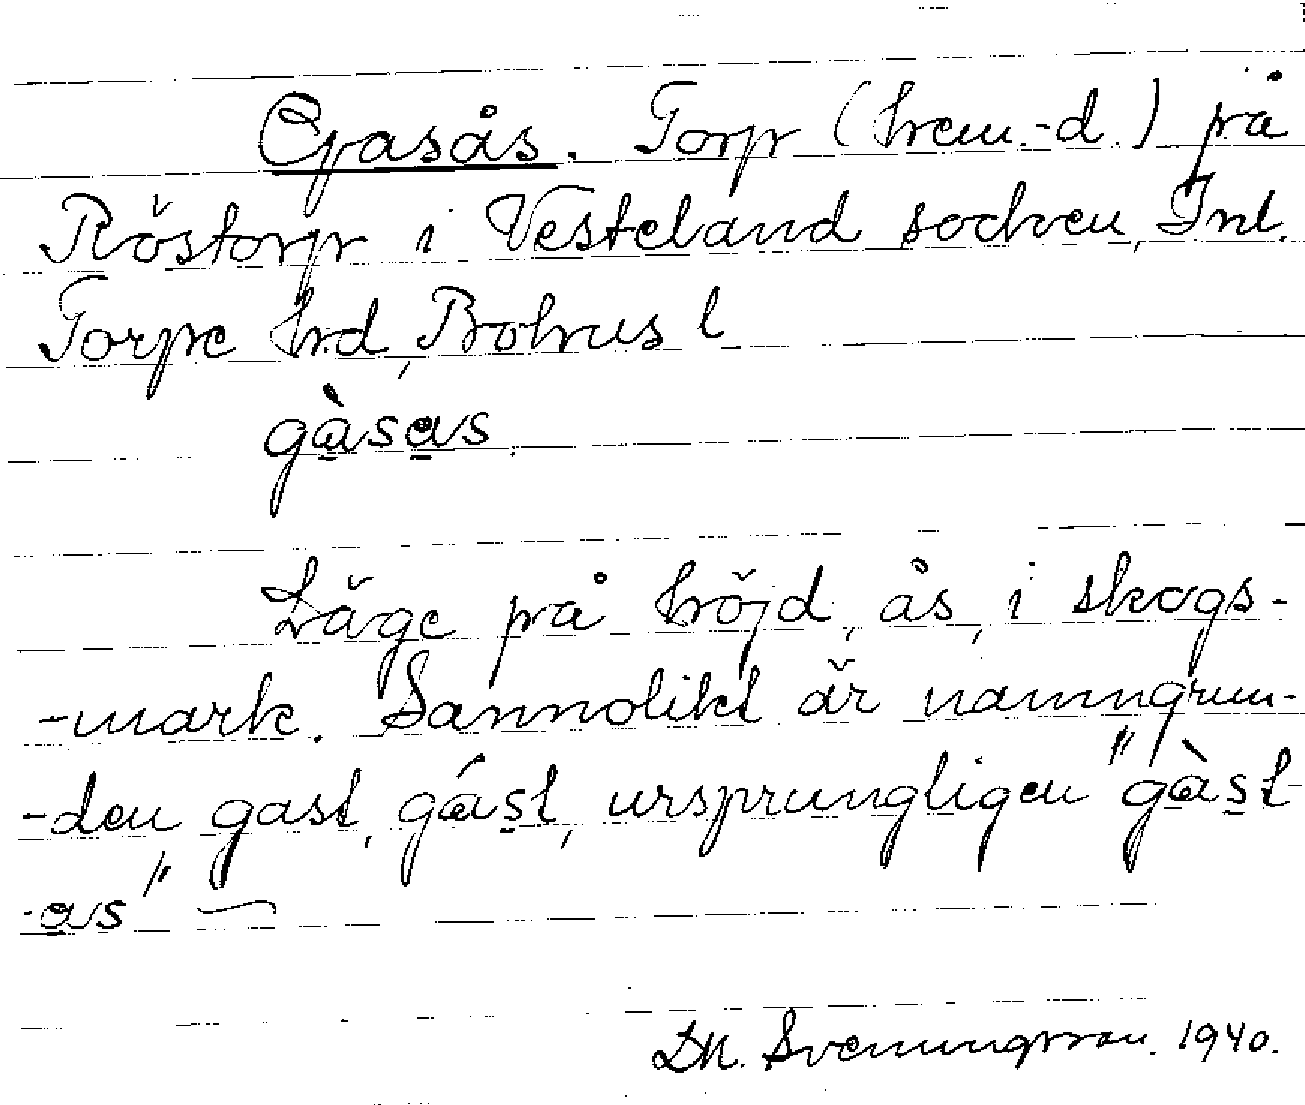 Gasås. Torp (hem.-d.) på
Röstorp i Vesterland socken, Inl.
Torpe hrd, Bohus l
gàsas.
Läge på höjd, ås, i skogs-
-mark. Sannolikt är namngrun-
-den gast, gást, ursprungligen "gàst-
-as"
D.M. Svenungsson. 1940.